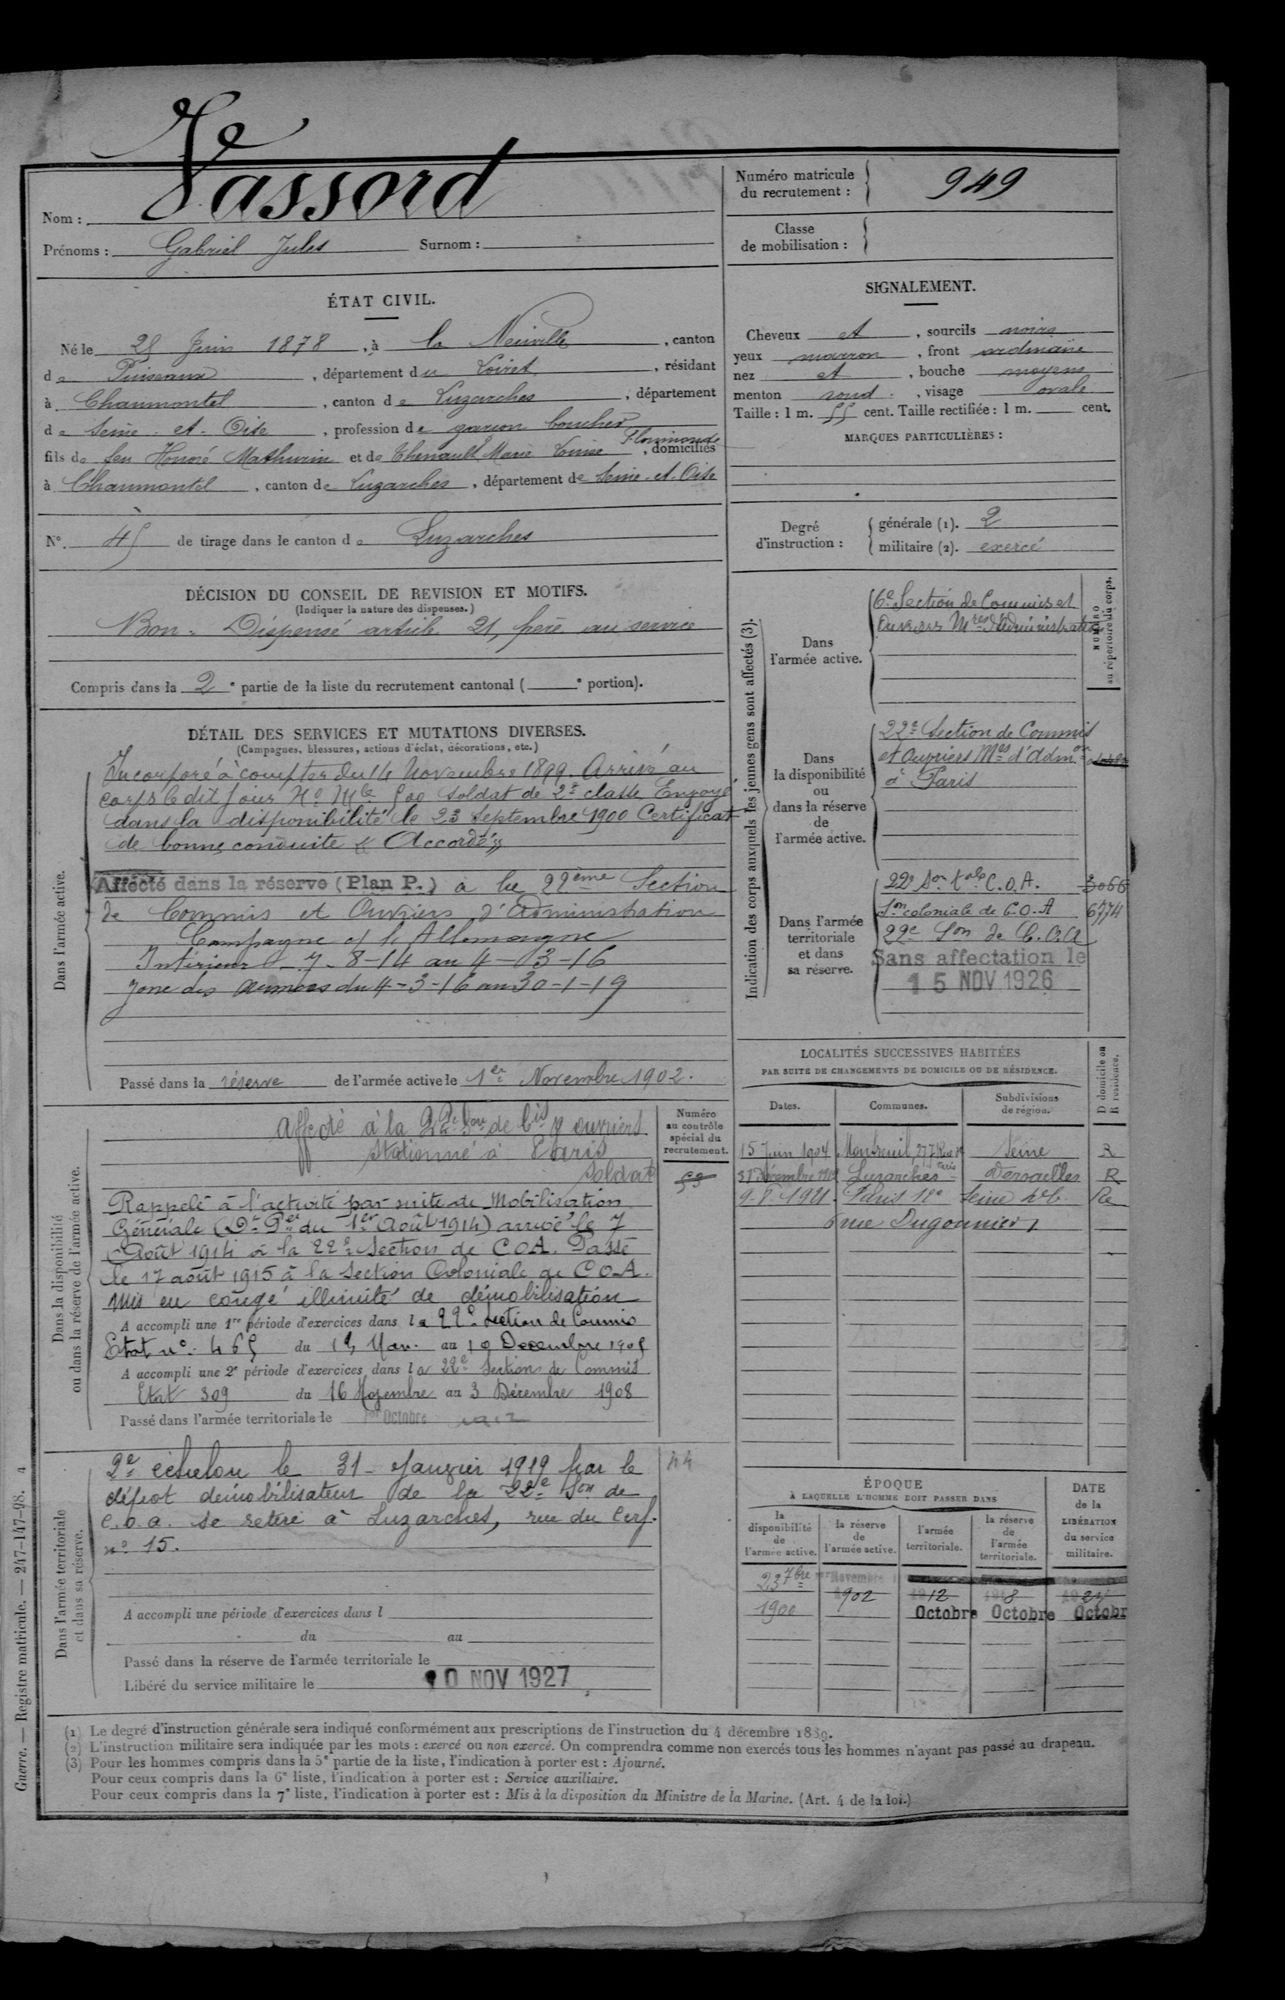 Nom : Vassord
Prénoms : Gabriel Jules Surnom :
Numéro matricule du recrutement : 949
Classe de mobilisation :
ÉTAT CIVIL.
Né le 28 Juin 1878, à la Neuville, canton
de Puiseaux, département du Loiret, résidant
à Chaumontel, canton de Luzarches, département
de Seine-et-Oise, profession de garçon boucher
fils de feu Honoré Mathurin et de Thenault Marie Louise Florimonde, domiciliés
à Chaumontel, canton de Luzarches, département de Seine-et-Oise
N° 45 de tirage dans le canton de Luzarches
SIGNALEMENT.
Cheveux et, sourcils noirs
yeux marron, front ordinaire
nez et, bouche moyens
menton rond, visage ovale
Taille : 1 m. 55 cent. Taille rectifiée : 1 m. cent.
MARQUES PARTICULIÈRES :
Degré d'instruction :
générale (1). 2
militaire (2). exercé
DÉCISION DU CONSEIL DE REVISION ET MOTIFS.
(Indiquer la nature des dispenses.)
Bon. Dispensé article 21, frère au service
Compris dans la 2e partie de la liste du recrutement cantonal ( e portion).
DÉTAIL DES SERVICES ET MUTATIONS DIVERSES.
(Campagnes, blessures, actions d'éclat, décorations, etc.)
Dans l'armée active.
Incorporé à compter du 14 Novembre 1899. Arrivé au
corps le dit jour No Mle 500 soldat de 2e classe Envoyé
dans la disponibilité le 23 septembre 1900 Certificat
de bonne conduite « Accordé »
Affecté dans la réserve (Plan P.) à la 22ème Section
de Commis et Ouvriers d'Administration
Campagne c/ l'Allemagne
Intérieur - 7-8-14 au 4-3-16
Zone des Armées du 4-3-16 au 30-1-19
Passé dans la réserve de l'armée active le 1er Novembre 1902.
Indication des corps auxquels les jeunes gens sont affectés (3).
NUMÉRO au répertoire du corps.
Dans l'armée active.
6e Section de Commis et
Ouvriers Mres d'Administration
Dans la disponibilité ou dans la réserve de l'armée active.
22e Section de Commis
et Ouvriers Mres d'Admon
à Paris
Dans l'armée territoriale et dans sa réserve.
22e Son tale C.O.A. 3066
Son coloniale de C.O.A 6774
22e Son de C.O.A
Sans affectation le
15 NOV 1926
Dans la disponibilité ou dans la réserve de l'armée active.
Numéro au contrôle spécial du recrutement.
Affecté à la 22e Son de Cis & ouvriers
stationné à Paris
Soldat
Rappelé à l'activité par suite de Mobilisation
Générale (Dt Pel du 1er Août 1914) arrivé le 7
Août 1914 à la 22e Section de C.O.A. Passé
le 17 août 1915 à la Section Coloniale de C.O.A.
Mis en congé illimité de démobilisation
A accompli une 1re période d'exercices dans la 22e section de Commis
Etat no 465 du 13 Nov. au 10 Decembre 1905
A accompli une 2e période d'exercices dans la 22e Section de Commis
Etat 309 du 16 Novembre au 3 Décembre 1908
Passé dans l'armée territoriale le 1er Octobre 1912
LOCALITÉS SUCCESSIVES HABITÉES
PAR SUITE DE CHANGEMENTS DE DOMICILE OU DE RÉSIDENCE.
Dates. Communes. Subdivisions de région. D domicile ou R résidence.
15 Juin 1904 Montreuil, 277 Rue de Paris Seine R
31 Décembre 1910 Luzarches Versailles R
9-8-1921 Paris 18e Seine Re
6 rue Dugommier
Dans l'armée territoriale et dans sa réserve.
2e échelon le 31 Janvier 1919 par le 44
dépot démobilisateur de la 22e Son de
C.O.A. se retire à Luzarches, rue du Cerf
no 15.
A accompli une période d'exercices dans l
du au
Passé dans la réserve de l'armée territoriale le
Libéré du service militaire le 10 NOV 1927
ÉPOQUE
À LAQUELLE L'HOMME DOIT PASSER DANS
la disponibilité de l'armée active. la réserve de l'armée active. l'armée territoriale. la réserve de l'armée territoriale. DATE de la LIBÉRATION du service militaire.
23 7bre 1900
1er Novembre 1902
1912 Octobre
1918 Octobre
Octobr
(1) Le degré d'instruction générale sera indiqué conformément aux prescriptions de l'instruction du 4 décembre 1889.
(2) L'instruction militaire sera indiquée par les mots : exercé ou non exercé. On comprendra comme non exercés tous les hommes n'ayant pas passé au drapeau.
(3) Pour les hommes compris dans la 5e partie de la liste, l'indication à porter est : Ajourné.
Pour ceux compris dans la 6e liste, l'indication à porter est : Service auxiliaire.
Pour ceux compris dans la 7e liste, l'indication à porter est : Mis à la disposition du Ministre de la Marine. (Art. 4 de la loi.)
Guerre. — Registre matricule. — 247-147-98. 4